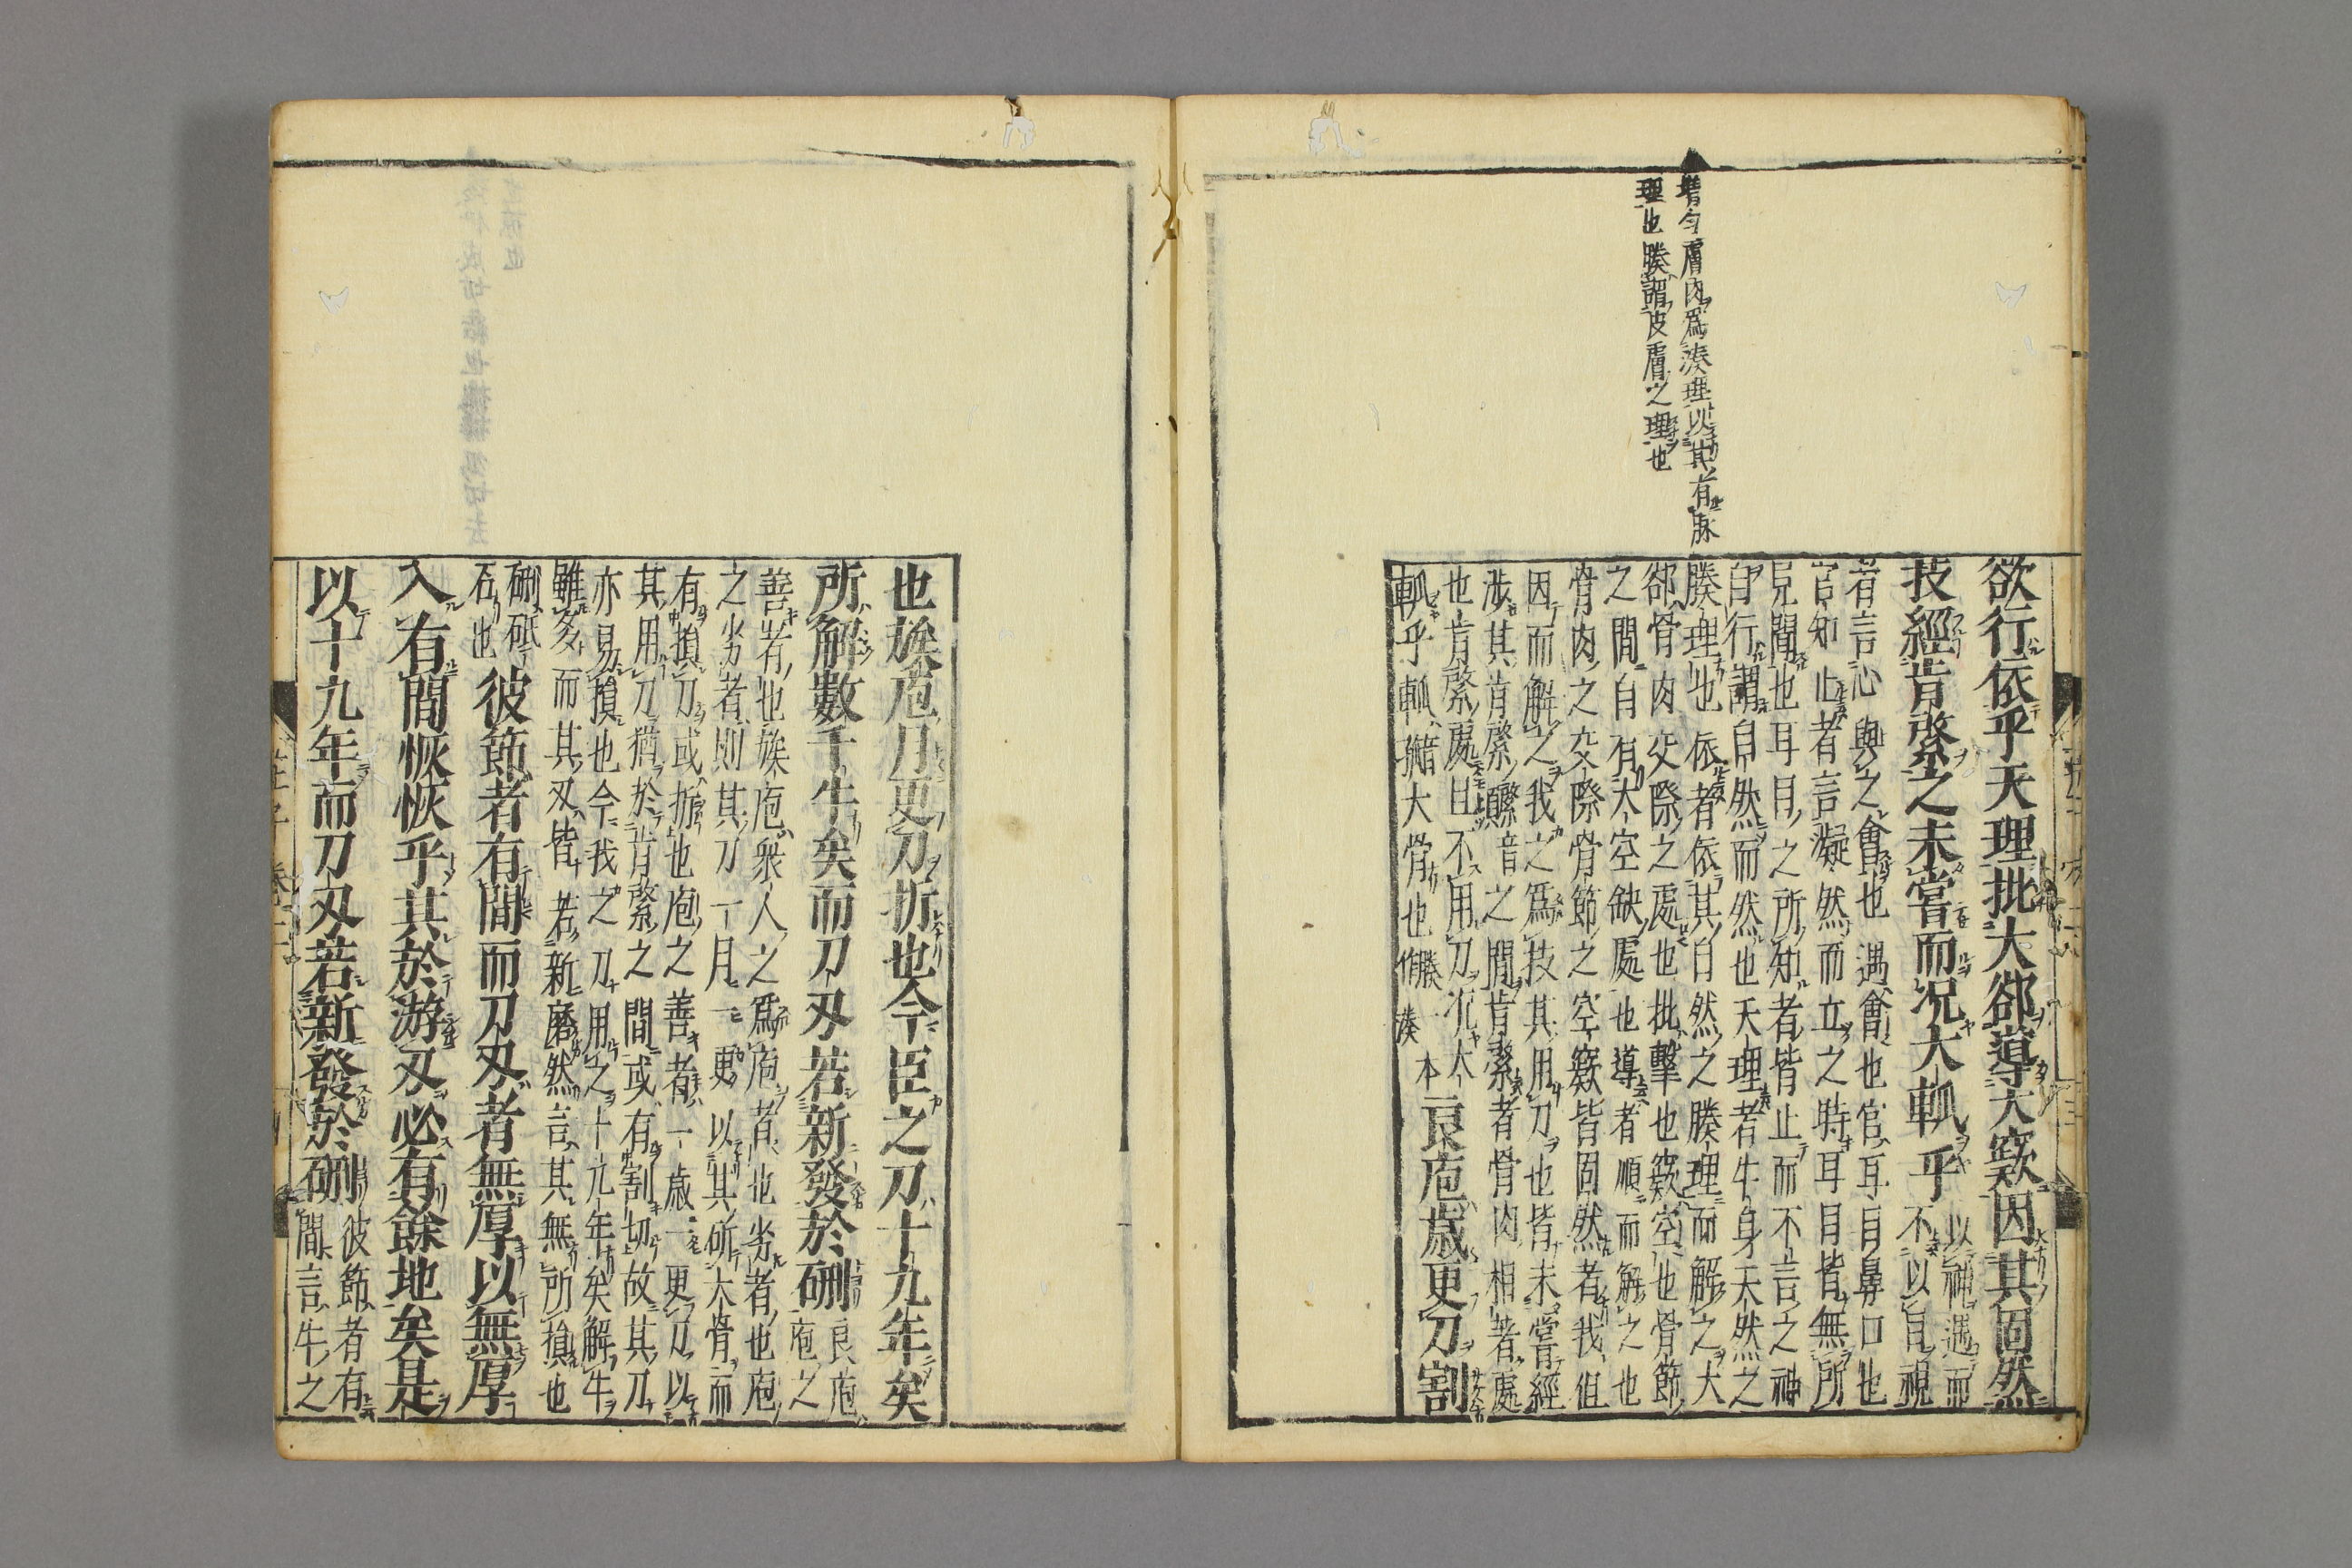 增匀膚内爲湊理以其有脉
理也腠謂皮膚之理也
欲行依乎天理批大郤導大窾因其固然
技經肯綮之未嘗而况大軱乎
以神遇而
不以目視
者言心與之會也遇會也官耳目鼻口也
官知止者言凝然而立之時耳目皆無所
見聞也耳目之所知者皆止而不言之神
自行謂自然而然也天理者牛身天然之
腠理也依者依其自然之腠理而解之大
郤骨肉交際之處也批擊也窾空也骨節
之間自有大空缺處也導者順而解之也
骨肉之交際骨節之空窾皆固然者我但
因而解之我之爲技其用刀也皆未嘗經
涉其肯綮之間肯綮者骨肉相著處
也肯綮處且不用刀况大
軱乎軱音孤大骨也腠一本作湊
良庖歲更刀割
也族庖月更刀折也今臣之刀十九年矣
所解數千牛矣而刀刃若新發於硎
良庖
庖之
善者也族庖衆人之爲庖者也劣者也庖
之劣者則其刀一月一更以其斫大骨而
有損刀或折也庖之善者一歲一更刀以
其用刀猶於肯綮之間或有割切故其刀
亦易損也今我之刀用之十九年矣解牛
雖多而其刃皆若新磨然言其無所損也
硎砥
石也
彼節者有間而刀刃者無厚以無厚
入有間恢恢乎其於游刃必有餘地矣是
以十九年而刀刃若新發於硎
彼節者有
間言牛之